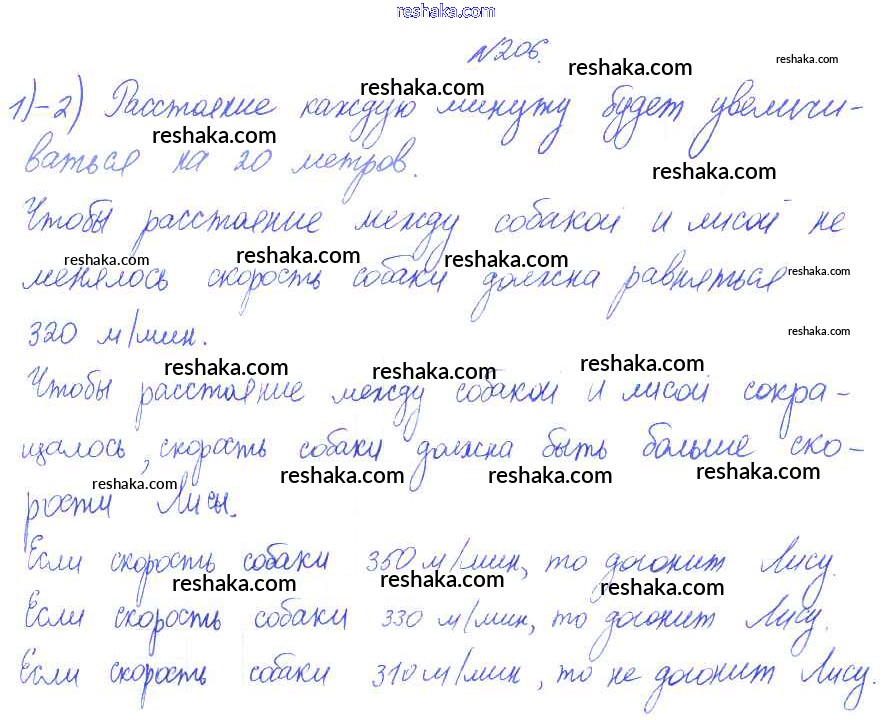 reshaka.com
№206.
reshaka.com reshaka.com
1)-2) Расстояние каждую минуту будет увеличи-
reshaka.com reshaka.com
ваться на 20 метров.
reshaka.com reshaka.com
Чтобы расстояние между собакой и лисой не
reshaka.com reshaka.com reshaka.com reshaka.com
менялось скорость собаки должна равняться
320 м/мин.
reshaka.com
reshaka.com reshaka.com reshaka.com
Чтобы расстояние между собакой и лисой сокра-
щалось, скорость собаки должна быть больше ско-
reshaka.com reshaka.com reshaka.com reshaka.com
рости Лисы.
Если скорость собаки 350 м/мин, то догонит Лису.
reshaka.com reshaka.com reshaka.com
Если скорость собаки 330 м/мин, то догонит Лису.
Если скорость собаки 310 м/мин, то не догонит Лису.
reshaka.com reshaka.com reshaka.com